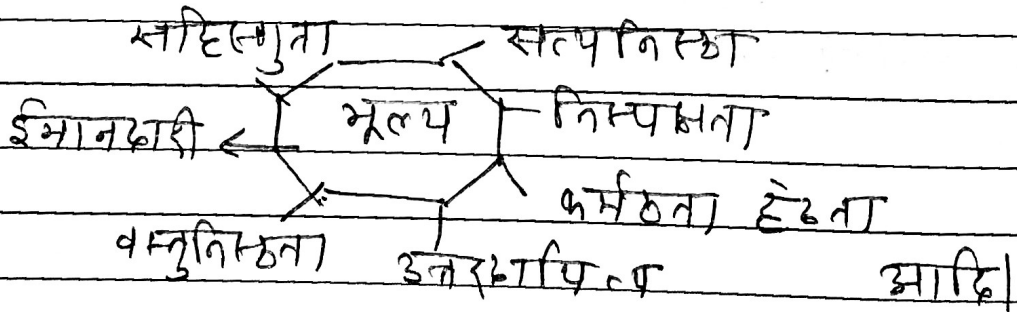 सहिस्णुता सत्यनिस्ठा
ईमानदारी मूल्य निस्पक्षता
कर्मठता
वस्तुनिस्ठता उत्तरदायित्व आदि।